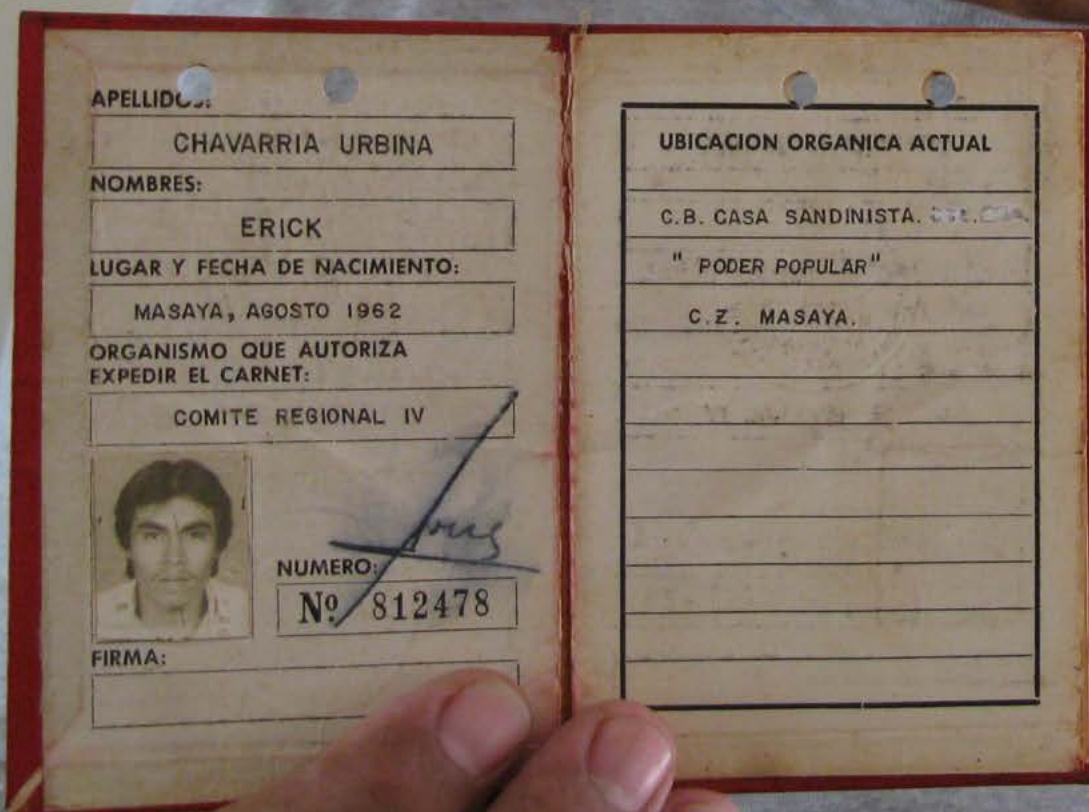 APELLIDOS:
CHAVARRIA URBINA
NOMBRES:
ERICK
LUGAR Y FECHA DE NACIMIENTO:
MASAYA, AGOSTO 1962
ORGANISMO QUE AUTORIZA
EXPEDIR EL CARNET:
COMITE REGIONAL IV
NUMERO:
Nº 812478
FIRMA:
UBICACION ORGANICA ACTUAL
C.B. CASA SANDINISTA.
" PODER POPULAR"
C.Z. MASAYA.